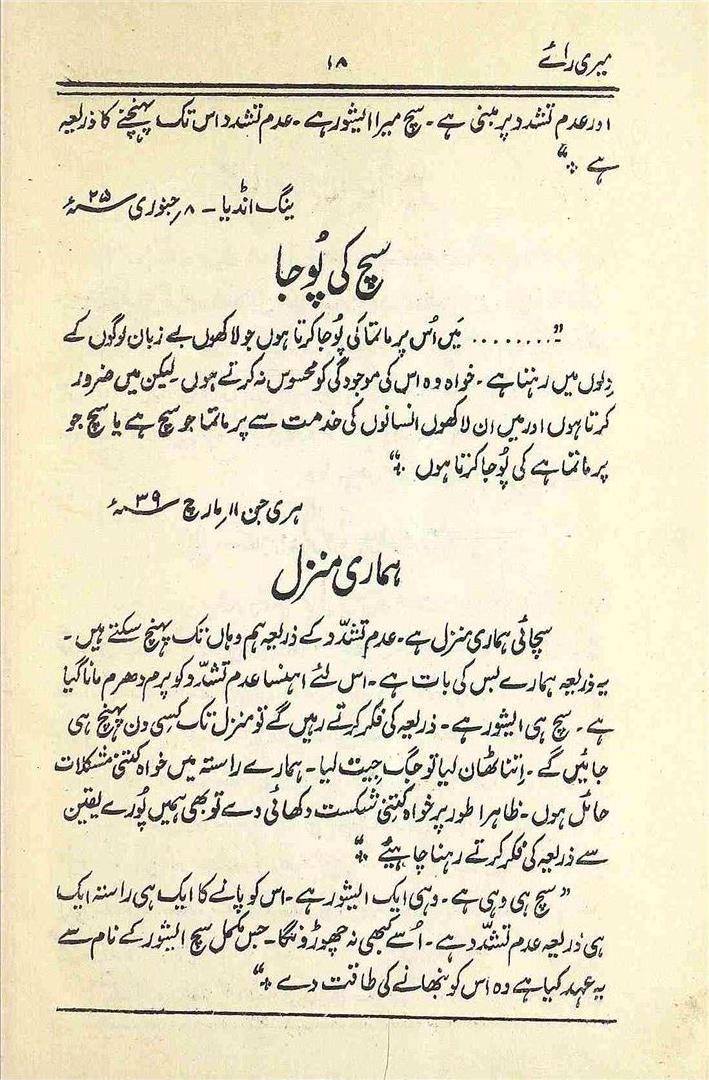 میری رائے
۱۸
اور عدم تشدد پر مبنی ہے۔ سچ میرا ایشور ہے۔ عدم تشدد اس تک پہنچنے کا ذریعہ
ہے ٭“
ینگ انڈیا۔ ۸؍ جنوری ۲۵؁ء
سچ کی پُوجا
”......... مَیں اُس پرماتما کی پُوجا کرتا ہوں جو لاکھوں بے زبان لوگوں کے
دِلوں میں رہتا ہے۔ خواہ وہ اس کی موجودگی کو محسوس نہ کرتے ہوں۔ لیکن میں ضرور
کرتا ہوں اور میں ان لاکھوں انسانوں کی خدمت سے پرماتما جو سچ ہے یا سچ جو
پرماتما ہے کی پُوجا کرتا ہوں ٭“
ہری جن ۱۱؍ مارچ ۳۹؁ء
ہماری منزل
سچائی ہماری منزل ہے۔ عدم تشدّد کے ذریعہ ہم وہاں تک پہنچ سکتے ہیں۔
یہ ذریعہ ہمارے بس کی بات ہے۔ اس لئے اہنسا عدم تشدّد کو پرم دھرم مانا گیا
ہے۔ سچ ہی ایشور ہے۔ ذریعہ کی فکر کرتے رہیں گے تو منزل تک کِسی دن پہنچ ہی
جائیں گے۔ اِتنا ٹھان لیا تو جگ جیت لیا۔ ہمارے راستہ میں خواہ کتنی مشکلات
حائل ہوں۔ ظاہرا طور پر خواہ کتنی شکست دکھائی دے تو بھی ہمیں پُورے یقین
سے ذریعہ کی فکر کرتے رہنا چاہیئے ٭“
”سچ ہی وہی ہے۔ وہی ایک ایشور ہے۔ اس کو پانے کا ایک ہی راستہ ایک
ہی ذریعہ عدم تشدّد ہے۔ اُسے کبھی نہ چھوڑونگا۔ جس مکمل سچ ایشور کے نام سے
یہ عہد کیا ہے وہ اس کو نبھانے کی طاقت دے ٭“